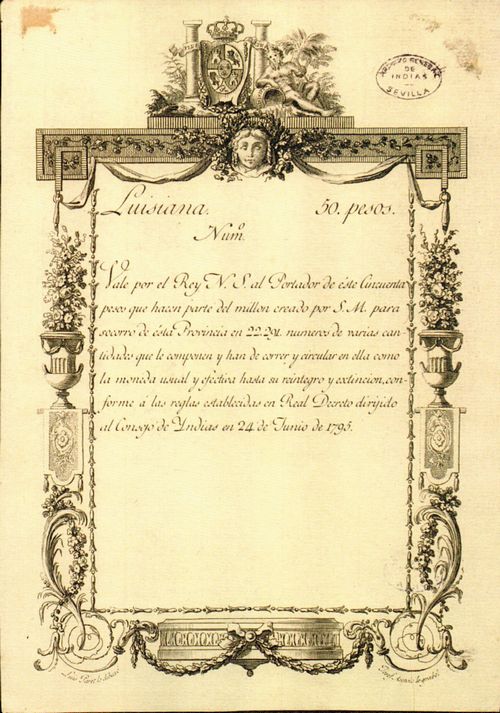 ARCHIVO GENERAL
DE
INDIAS
SEVILLA
Luisiana. 50. pesos.
Numº.
Vale por el Rey N. S. al Portador de éste Cincuenta
pesos que hacen parte del millon creado por S. M. para
socorro de ésta Provincia en 22.291. numeros de varias can-
tidades que le componen y han de correr y circular en ella como
la moneda usual y efectiva hasta su reintegro y extincion, con-
forme á las reglas establecidas en Real Decreto dirijido
al Consejo de Yndias en 24 de Junio de 1795.
Luis Paret lo dibuxó.